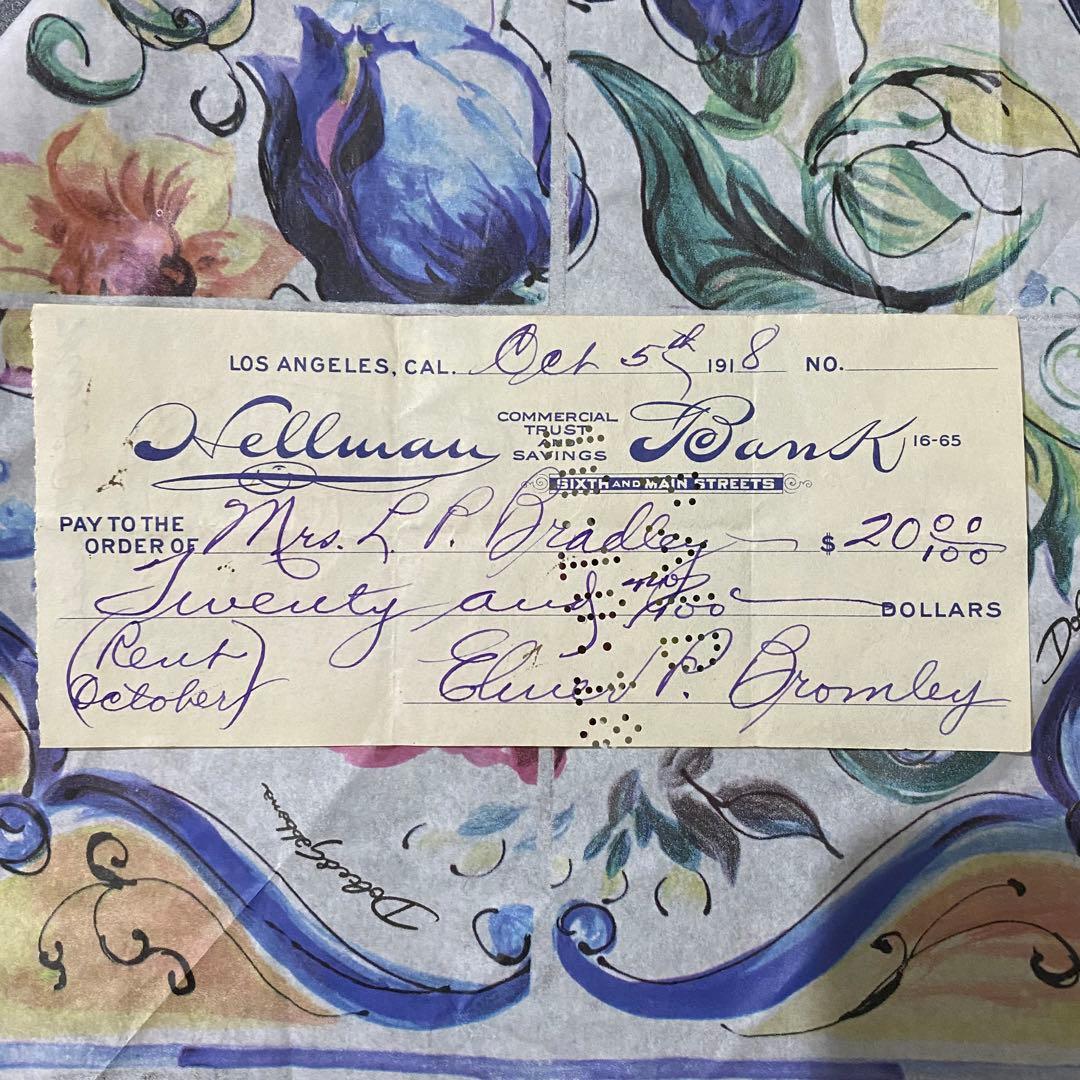 LOS ANGELES, CAL. Oct 5th 1918 NO.
Hellman COMMERCIAL TRUST AND SAVINGS Bank 16-65
SIXTH AND MAIN STREETS
PAY TO THE ORDER OF Mrs. L. P. Bradley $ 20 00/100
Twenty and no/100 DOLLARS
(Rent October)
Elmer P. Bromley
Dolce&Gabbana